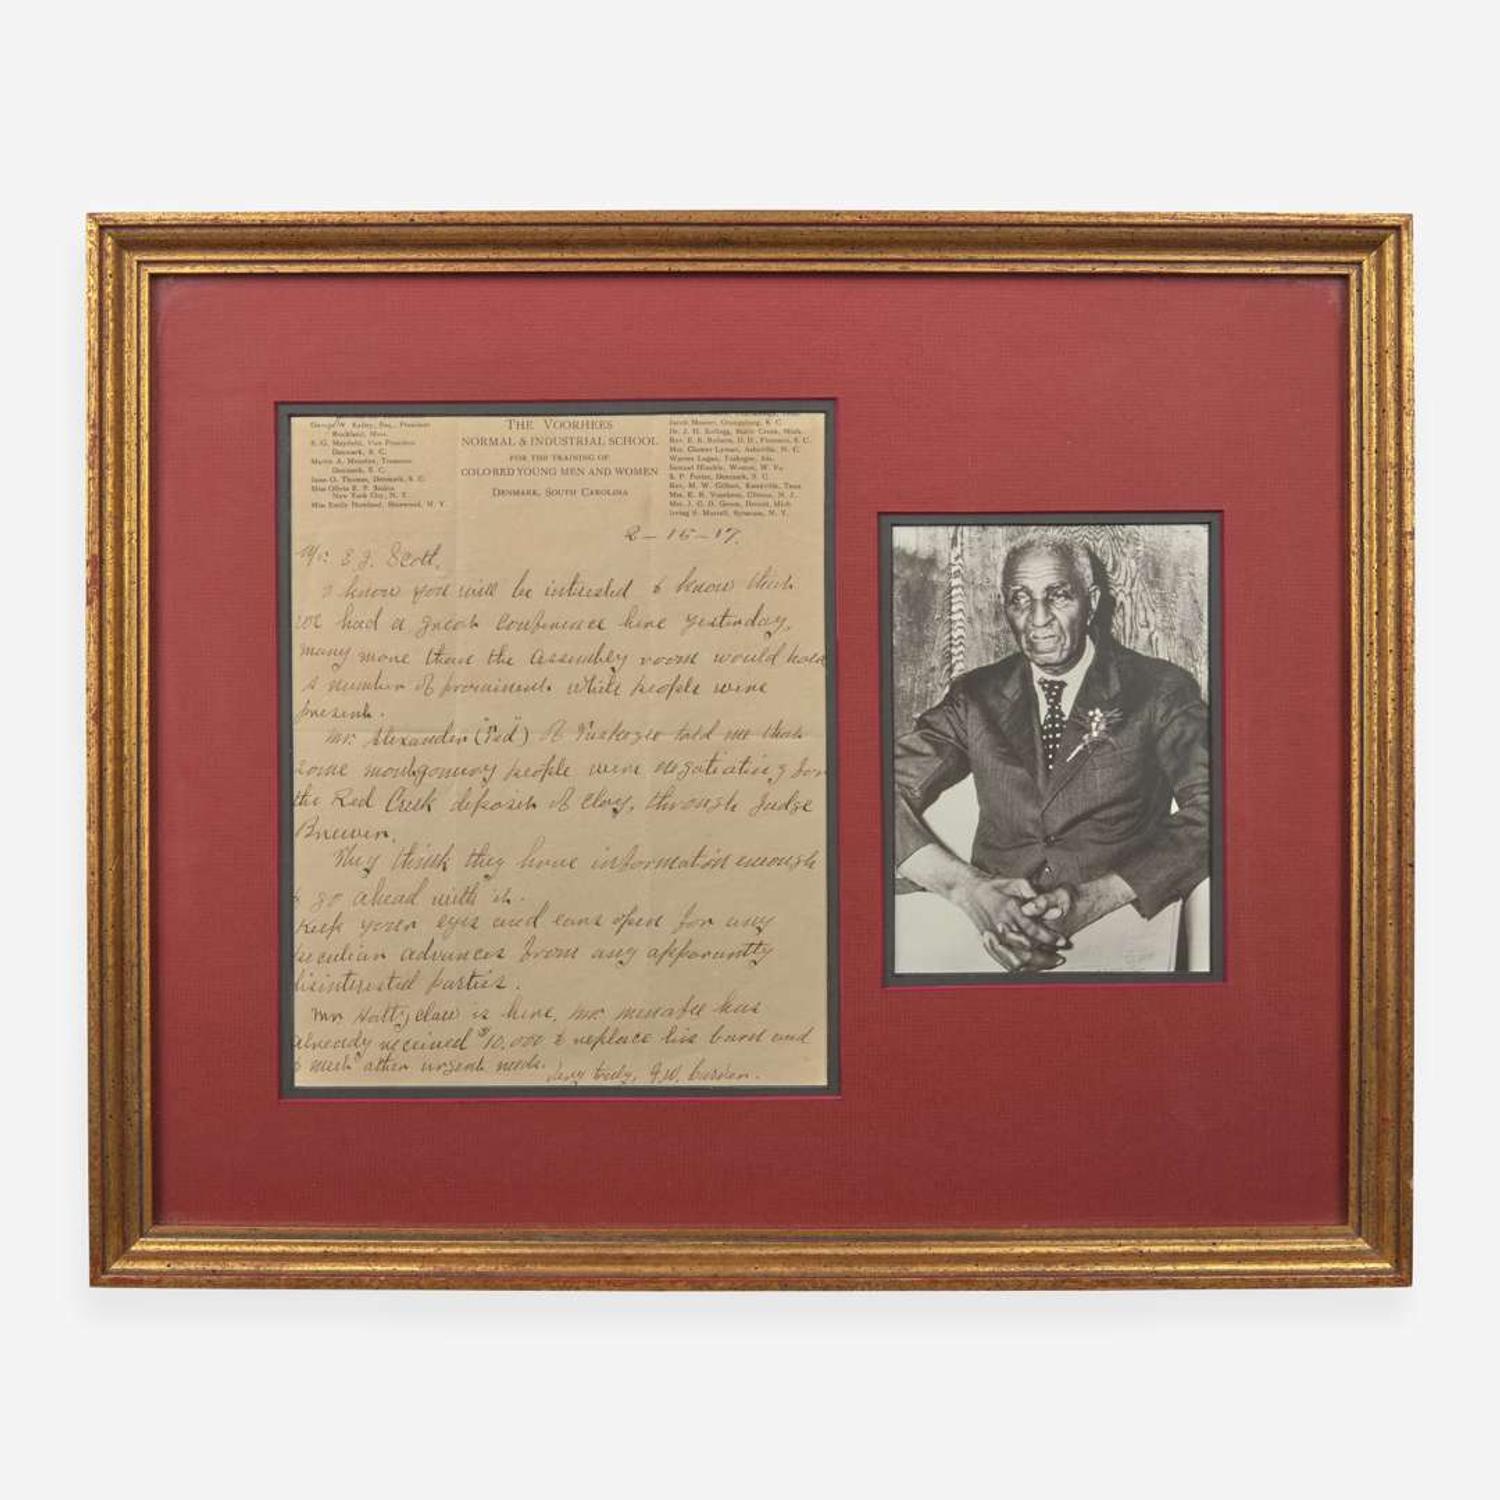 George W. Kelley, Esq., President
Rockland, Mass.
S. G. Mayfield, Vice President
Denmark, S. C.
Martin A. Menafee, Treasurer
Denmark, S. C.
Isaac O. Thomas, Denmark, S. C.
Miss Olivia E. P. Stokes
New York City, N. Y.
Miss Emily Howland, Sherwood, N. Y.
THE VOORHEES
NORMAL & INDUSTRIAL SCHOOL
FOR THE TRAINING OF
COLORED YOUNG MEN AND WOMEN
DENMARK, SOUTH CAROLINA
Jacob Moorer, Orangeburg, S. C.
Dr. J. H. Kellogg, Battle Creek, Mich.
Rev. E. R. Roberts, D. D., Florence, S. C.
Mrs. Lyman, Asheville, N. C.
Warren Logan, Tuskegee, Ala.
Samuel W. Va.
S. P. Porter, Denmark, S. C.
Rev. M. W. Gilbert, Knoxville, Tenn.
Mrs. E. R. Voorhees, Clinton, N. J.
Mrs. J. C. D. Green, Detroit, Mich.
Irving S. Merrell, Syracuse, N. Y.
2-15-17.
Mr. E J. Scott,
I know you will be interested to know that
we had a great conference here yesterday,
many more than the assembly room would hold
a number of prominent white people were
present.
Mr. Alexander ("Ped") of Tuskegee told me that
some montgomery people were negotiating for
the Red Creek deposit of clay, through Judge
Brewer.
They think they have information enough
to go ahead with it.
Keep your eyes and ears open for any
peculiar advances from any apparently
disinterested parties.
Mr. Holtzclaw is here, Mr. menafee has
already received $10,000 to replace his barn and
to meet other urgent needs. Very truly, G.W. Carver.